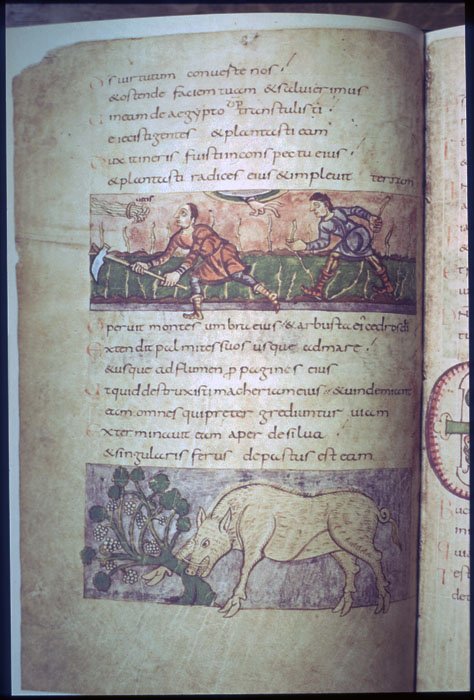 Ds uirtutum conuerte nos
& ostende faciem tuam & salui erimus
Uineam de aegypto transtulisti
eiecisti gentes & plantasti eam
Dux itineris fuisti in conspectu eius
& plantasti radices eius & impleuit terram
Operuit montes umbra eius & arbusta ei cedros di
Extendit palmites suos usque ad mare
& usque ad flumen p pagines eius
Ut quid destruxisti macheriam eius & uindemiant
eam omnes qui preter grediuntur uiam
Exterminauit eam aper de silua
& singularis ferus depastus est eam